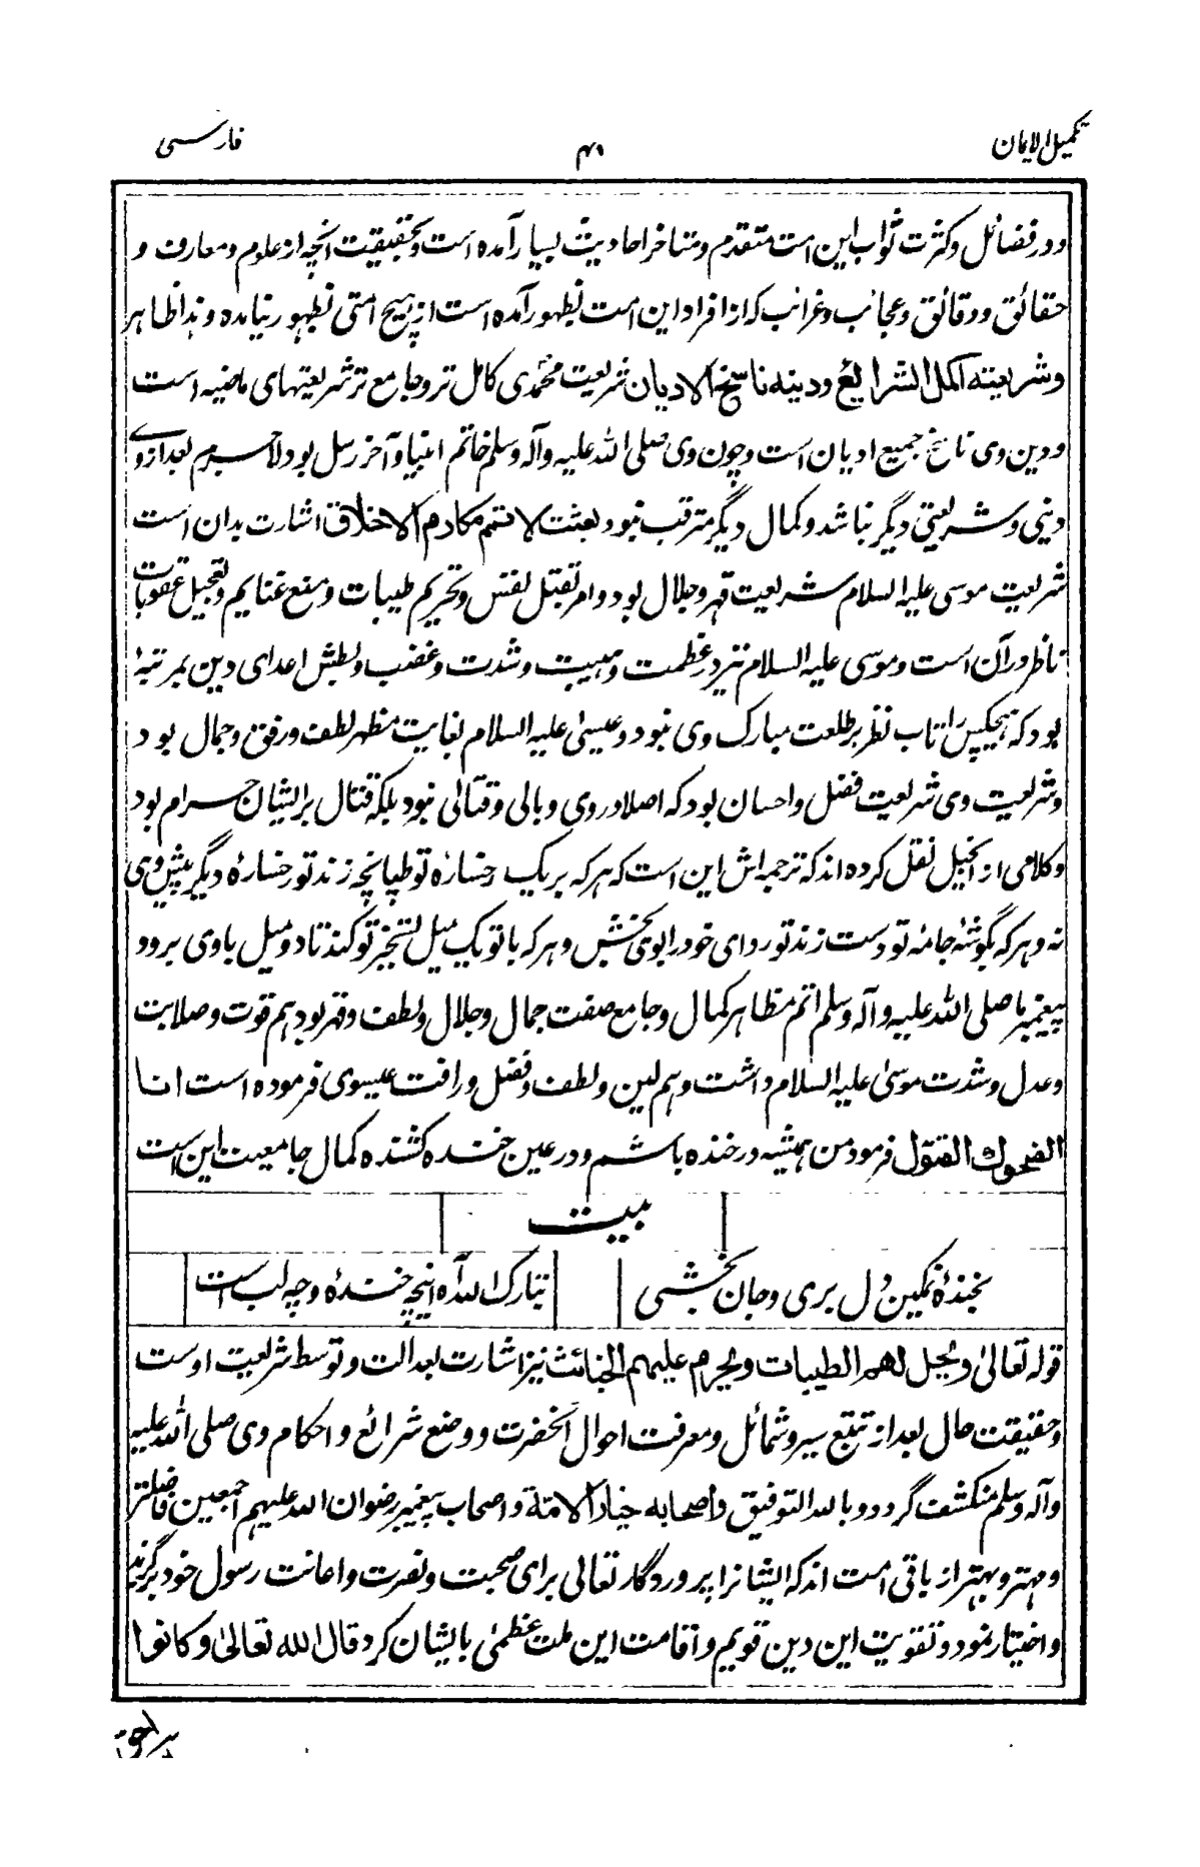 تکمیل الایمان
۴۱
فارسی
ودر فضائل وکثرت ثواب این امت متقدم ومتاخر احادیث بسیار آمده است وبحقیقت آنچه از علوم ومعارف و
حقائق ودقائق وعجائب وغرائب که از افراد این امت بظهور آمده است از هیچ امتی بظهور نیامده وهذا ظاهر
وشریعته اکمل الشرائع ودینه ناسخ الادیان شریعت محمدی کامل تر وجامع تر شریعتهای ماضیه است
ودین وی ناسخ جمیع ادیان است وچون وی صلی الله علیه وآله وسلم خاتم انبیا وآخر رسل بود لاجرم بعد از وے
دینی وشریعتی دیگر نباشد وکمال دیگر مترقب نبود بعثت لاتمم مکارم الاخلاق اشارت بدان است
شریعت موسی علیه السلام شریعت قهر وجلال بود وامر بقتل نفس وتحریم طیبات ومنع غنایم وتعجیل عقوبات
ناظر در آن است وموسی علیه السلام نیز در عظمت وهیبت وشدت وغضب وبطش اعدای دین بمرتبۀ
بود که هیچکس را تاب نظر بر طلعت مبارک وی نبود وعیسیٰ علیه السلام بغایت مظهر لطف ورفق وجمال بود
وشریعت وی شریعت فضل واحسان بود که اصلا در وی وبالی وقتالی نبود بلکه قتال بر ایشان حرام بود
وکلامی از انجیل نقل کرده اند که ترجمه اش این است که هر که بر یک رخسارۀ تو طپانچه زند تو رخسارۀ دیگر پیش وی
نه وهر که بگوشۀ جامۀ تو دست زند تو ردای خود را بوی بخش وهر که با تو یک میل تسخیر تو کند تا دو میل با وی برو و
پیغمبر ما صلی الله علیه وآله وسلم اتم مظاهر کمال وجامع صفت جمال وجلال ولطف وقهر بود هم قوت وصلابت
وعدل وشدت موسیٰ علیه السلام داشت وهم لین ولطف وفضل ورافت عیسوی فرموده است انا
الضحوك القتول فرمود من همیشه در خنده باشم ودر عین خنده کشنده کمال جامعیت این است
بیت
بخندۀ نمکین دل بری وجان بخشی
تبارک الله آه اینچه خندۀ وچه لب است
قوله تعالیٰ ویحل لهم الطیبات ویحرم علیهم الخبائث نیز اشارت بعدالت وتوسط شریعت اوست
وحقیقت حال بعد از تتبع سیر وشمائل ومعرفت احوال آنحضرت ووضع شرائع واحکام وی صلی الله علیه
وآله وسلم منکشف گردد وبالله التوفیق واصحابه خیار الامة واصحاب پیغمبر رضوان الله علیهم اجمعین فاضلتر
ومهتر وبهتر از باقی امت اند که ایشانرا پروردگار تعالی برای صحبت ونصرت واعانت رسول خود برگزید
واختیار نمود وتقویت این دین قویم واقامت این ملت عظمیٰ بایشان کرد قال الله تعالیٰ وکانوا
احق